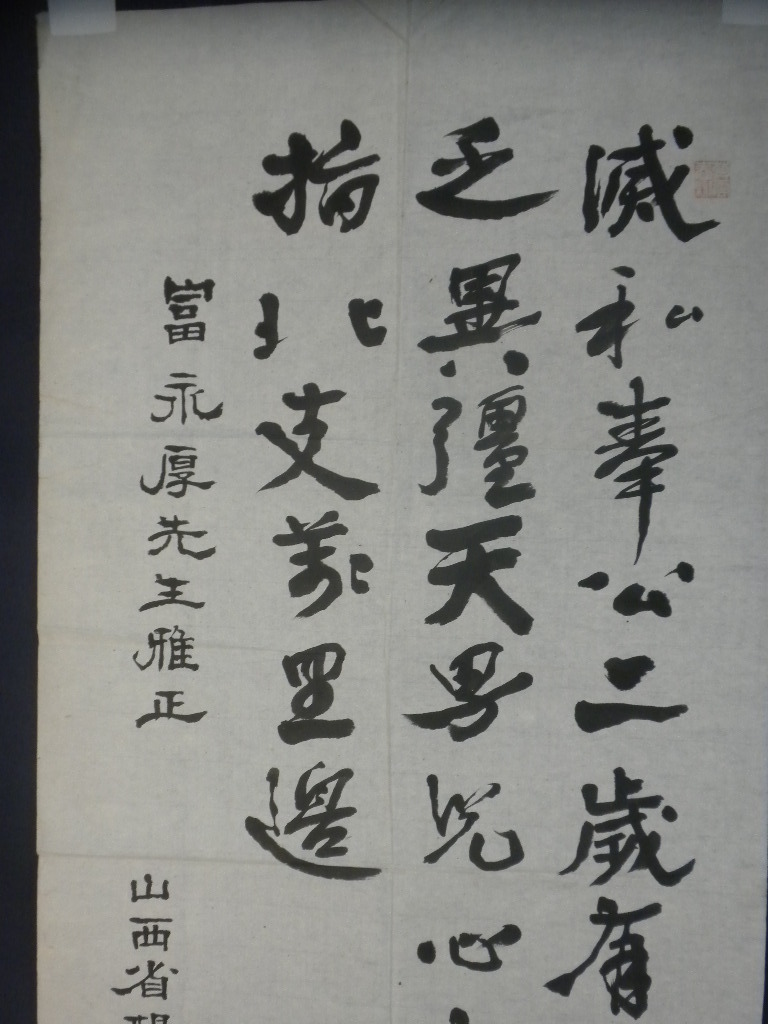 滅私奉公二歳有
之異疆天男児心
指北支萬里邊
富永厚先生雅正
山西省